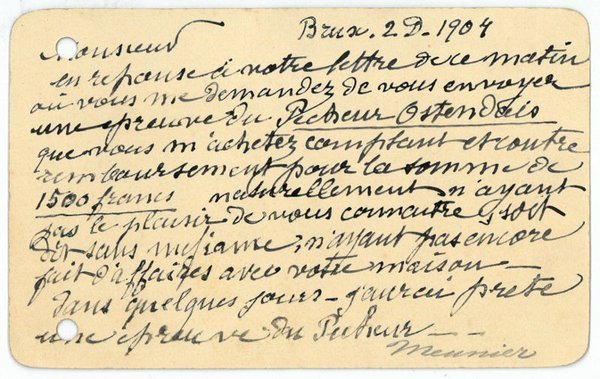 Brux. 2 D. 1904
Monsieur
en reponse à votre lettre de ce matin
où vous me demandez de vous envoyer
une epreuve du Pecheur Ostendais
que vous m'achetez comptant et contre
remboursement pour la somme de
1500 francs naturellement n'ayant
pas le plaisir de vous connaitre, soit
dit sans mefiance, n'ayant pas encore
fait d'affaires avec votre maison —
Dans quelques jours — j'aurai prete
une epreuve du Pecheur — - -
Meunier